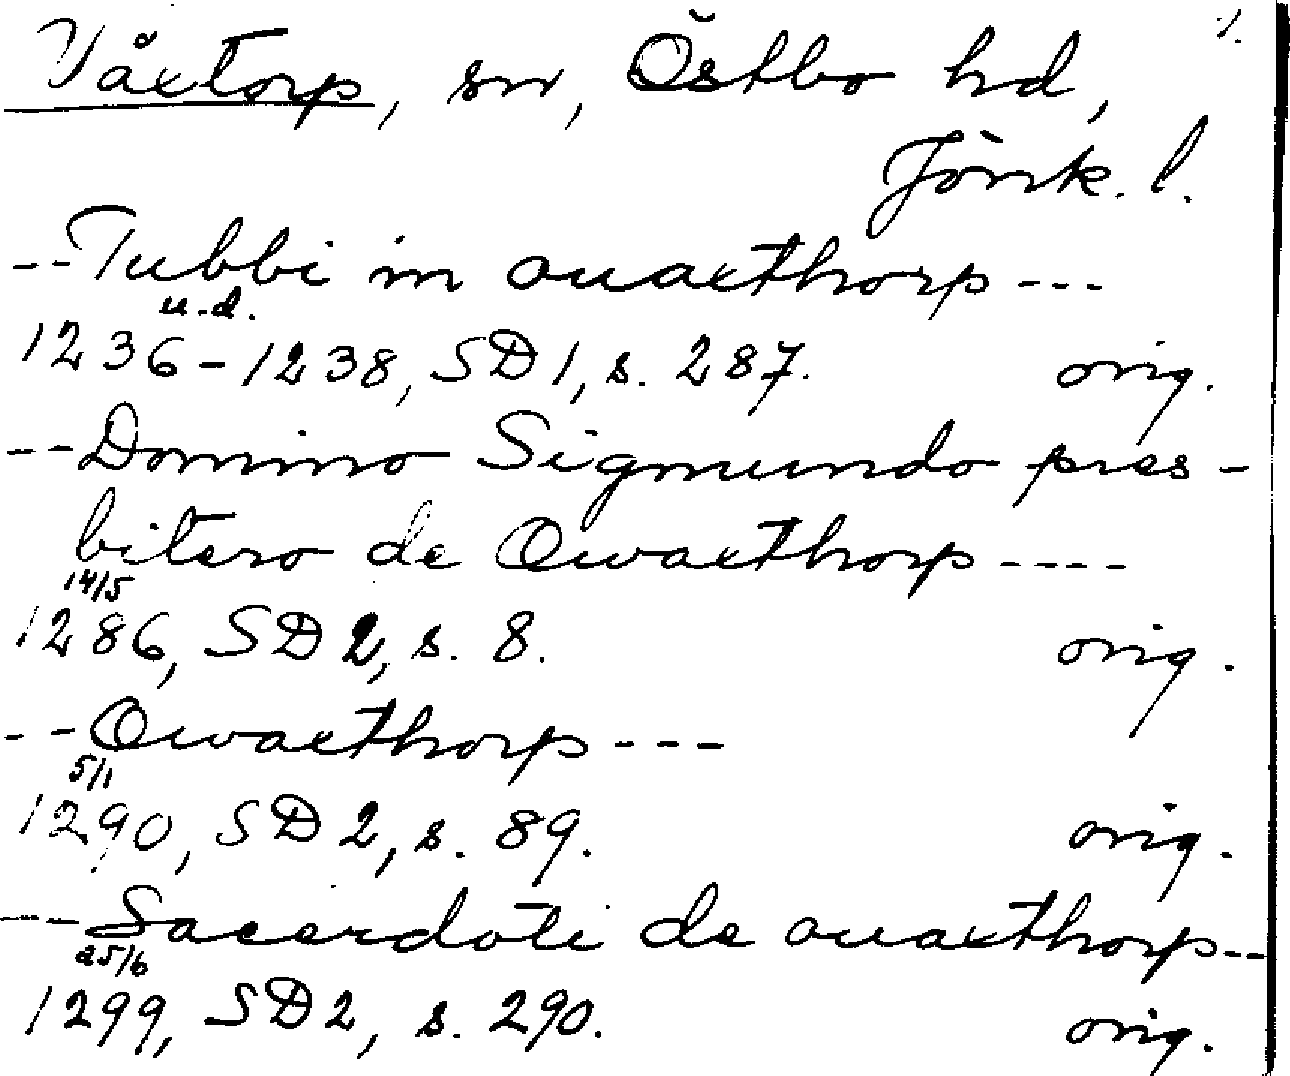 1.
Våxtorp, sn, Östbo hd,
Jönk. l.
--Tubbi in ouaxthorp---
u.d.
1236-1238, SD1, s. 287. orig.
--Domino Sigmundo pres-
bitero de Owaxthorp----
14/5
1286, SD2, s. 8. orig.
--Owaxthorp---
5/1
1290, SD2, s. 89. orig.
---Sacerdoti de ouaxthorp--
25/6
1299, SD2, s. 290. orig.